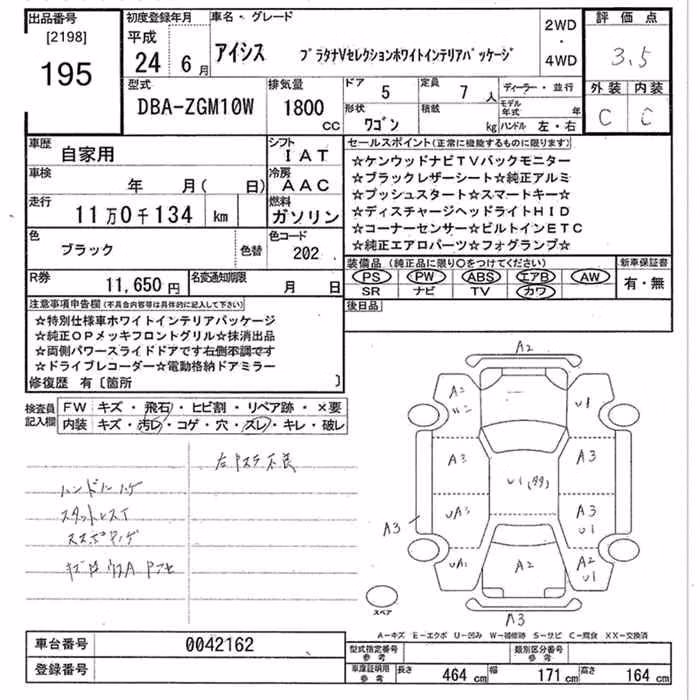 出品番号
[2198]
195
初度登録年月
平成
24 6月
車名・グレード
アイシス プラタナVセレクションホワイトインテリアパッケージ
2WD
・
4WD
評価点
3.5
外装 内装
C C
型式
DBA-ZGM10W
排気量
1800
CC
ドア
5
定員
7人
形状
ワゴン
積載
kg
ディーラー・並行
モデル年式 年
ハンドル 左・右
車歴
自家用
シフト
IAT
車検
年 月( 日)
冷房
AAC
走行
11万0千134 km
燃料
ガソリン
色
ブラック
色替
色コード
202
R券
11,650円
名変通知期限
月 日
セールスポイント(正常に機能するものに限ります)
☆ケンウッドナビTVバックモニター
☆ブラックレザーシート☆純正アルミ
☆プッシュスタート☆スマートキー☆
☆ディスチャージヘッドライトHID
☆コーナーセンサー☆ビルトインETC
☆純正エアロパーツ☆フォグランプ☆
装備品(純正品に限り○をつけてください)
PS PW ABS エアB AW
SR ナビ TV カワ
新車保証書
有・無
後日品
注意事項申告欄(不具合内容等は具体的に記入して下さい)
☆特別仕様車ホワイトインテリアパッケージ
☆純正OPメッキフロントグリル☆抹消出品
☆両側パワースライドドアです右側不調です
☆ドライブレコーダー☆電動格納ドアミラー
修復歴 有〔箇所 〕
検査員記入欄
FW キズ・飛石・ヒビ割・リペア跡・×要
内装 キズ・汚レ・コゲ・穴・スレ・キレ・破レ
ハンドルハゲ
A2
A2
U1
A3
A3
U1
A3
U1
A3
UA1
A2
A2
U1
A3
スペア
A-キズ E-エクボ U-凹み W-補修跡 S-サビ C-腐食 XX-交換済
車台番号
0042162
登録番号
型式指定番号
参考
類別区分番号
参考
車庫証明用
参考
長さ 464 cm 幅 171 cm 高さ 164 cm